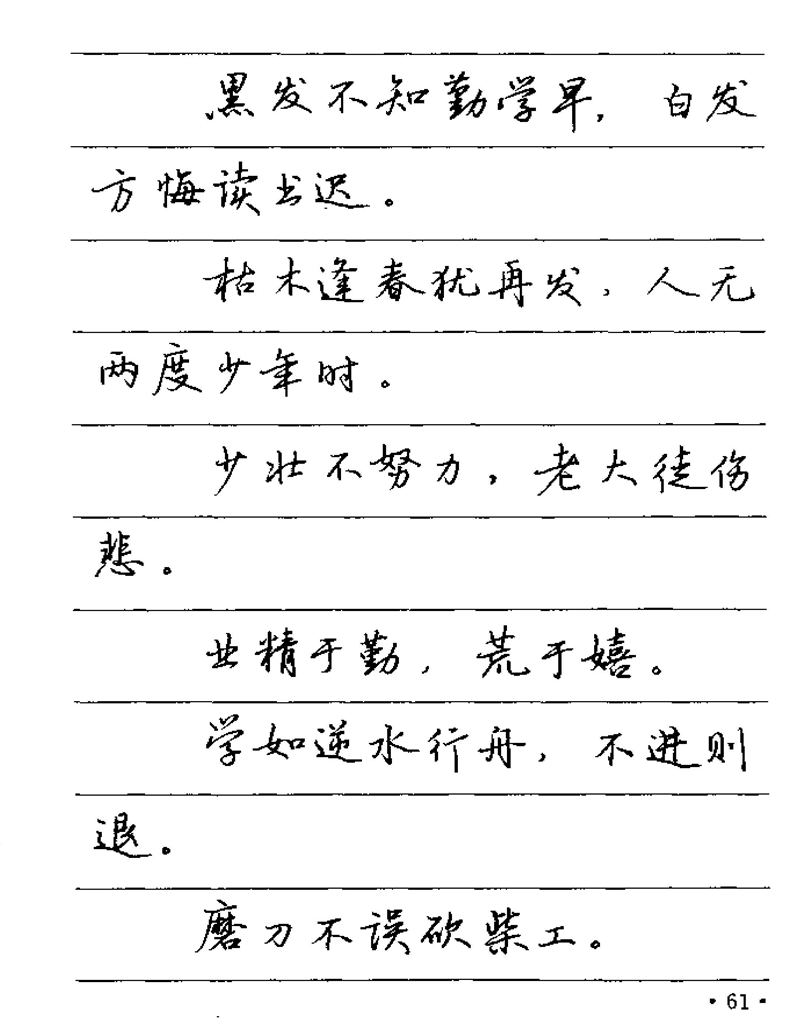 黑发不知勤学早，白发
方悔读书迟。
枯木逢春犹再发，人无
两度少年时。
少壮不努力，老大徒伤
悲。
业精于勤，荒于嬉。
学如逆水行舟，不进则
退。
磨刀不误砍柴工。
·61·